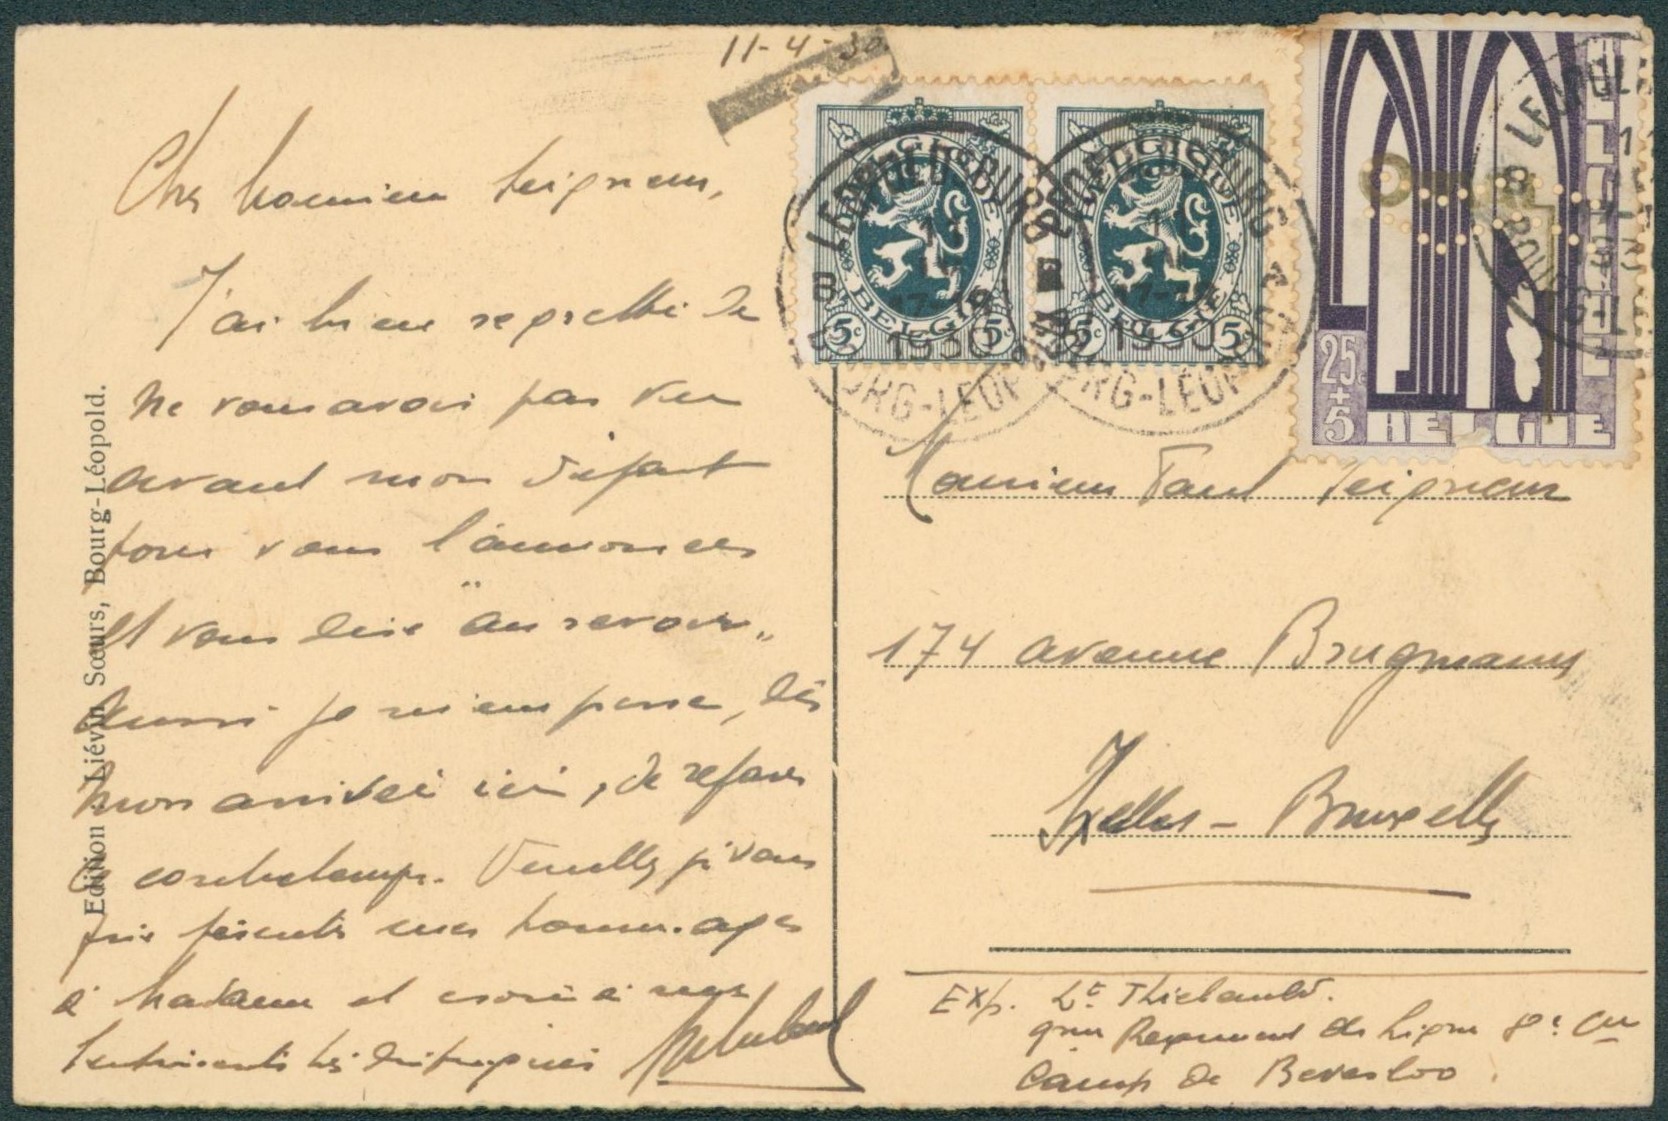 11-4-30
Cher Monsieur Seigneur,
J'ai bien regretté de
ne vous avoir pas vu
avant mon départ
pour vous l'annoncer
et vous dire "au revoir"
Aussi je m'empresse, dès
mon arrivée ici, de refaire
ce contretemps. Veuillez je vous
prie présenter mes hommages
à Madame et croire à mes
sentiments très distingués
Edition Liévin Sœurs, Bourg-Léopold.
BELGIQUE
BELGIE
5c 5c
BELGIQUE
BELGIE
5c 5c
LEOPOLDSBURG
8
11
17-18
1930
BOURG-LEOPOLD
25c
+5
BELGIE
Monsieur Paul Seigneur
174 avenue Brugmann
Ixelles - Bruxelles
Exp. Lt Thiebauld.
9me Regiment de Ligne 8e Cie
Camp de Beverloo.